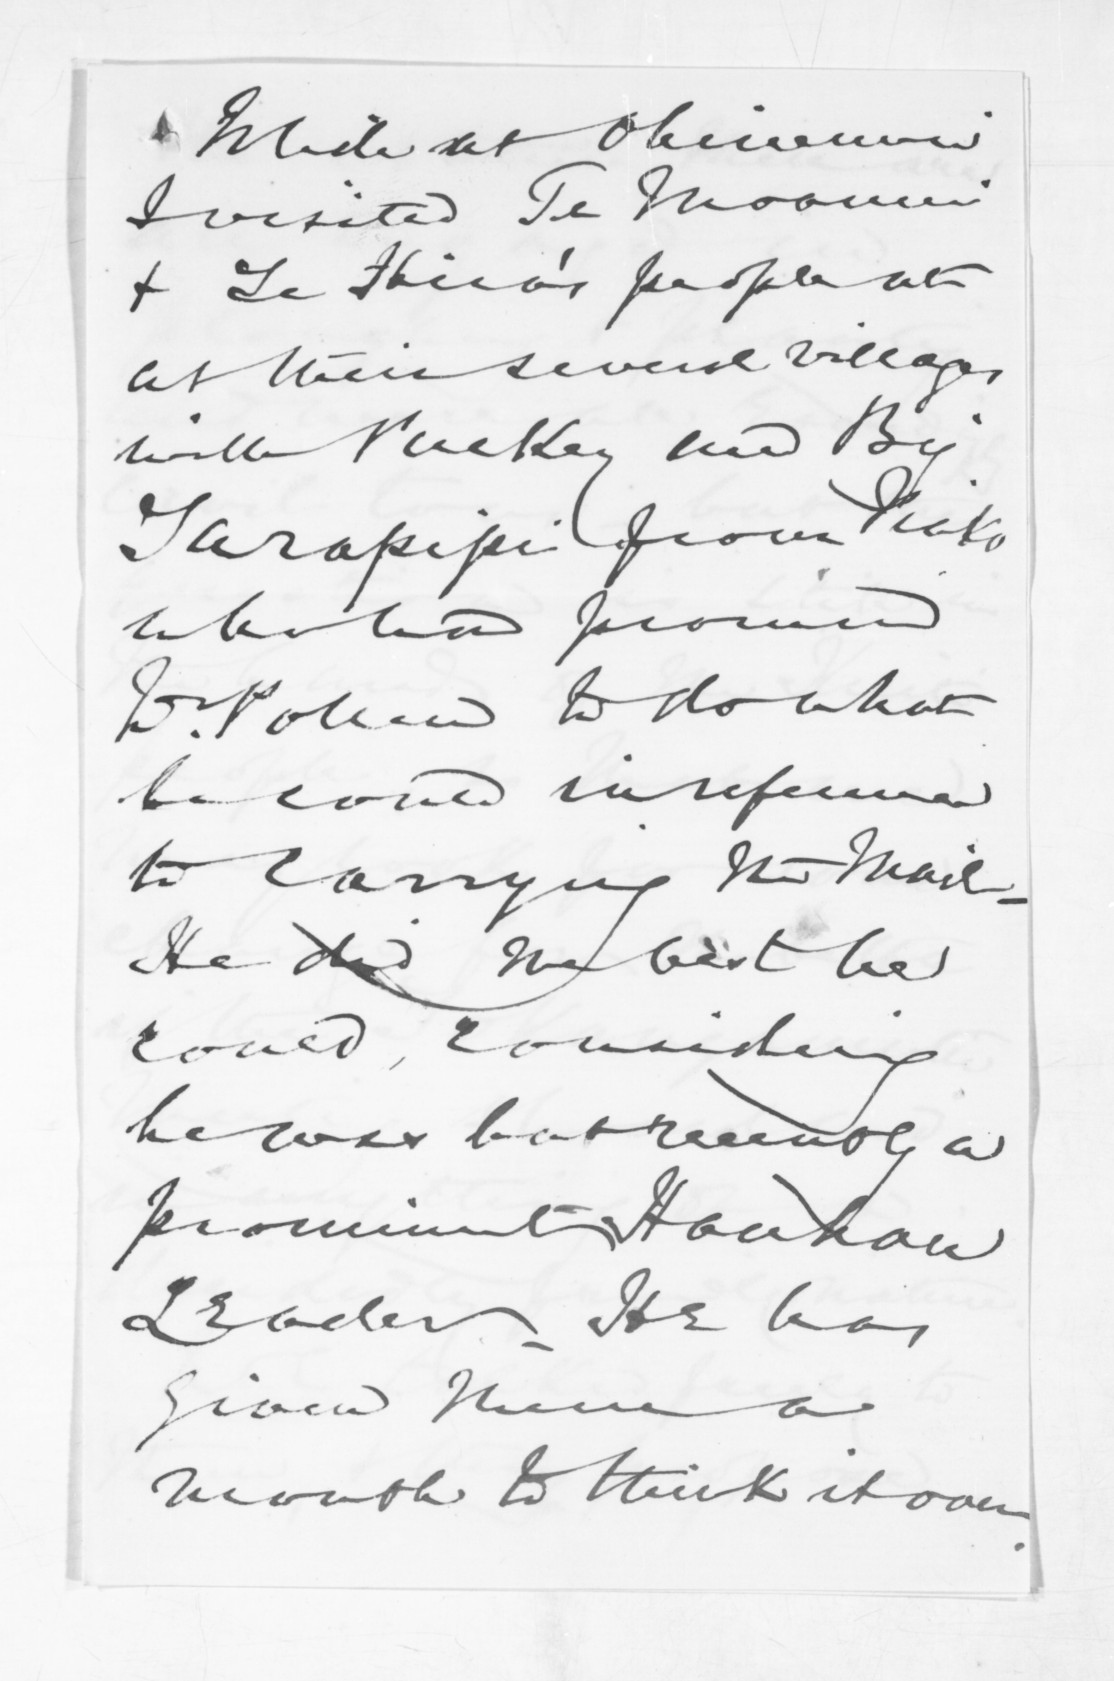 While at Ohinemuri
I visited Te Moananui
& Te Hira's people at
at their several villages
with Puckey and Big
Tarapipi from Piako
who had promised
Dr. Pollen to do what
he could in reference
to carrying the Mail –
He did the best he
could, considering
he was but recently a
prominent Hauhau
Leader – He has
given them a
month to think it over.